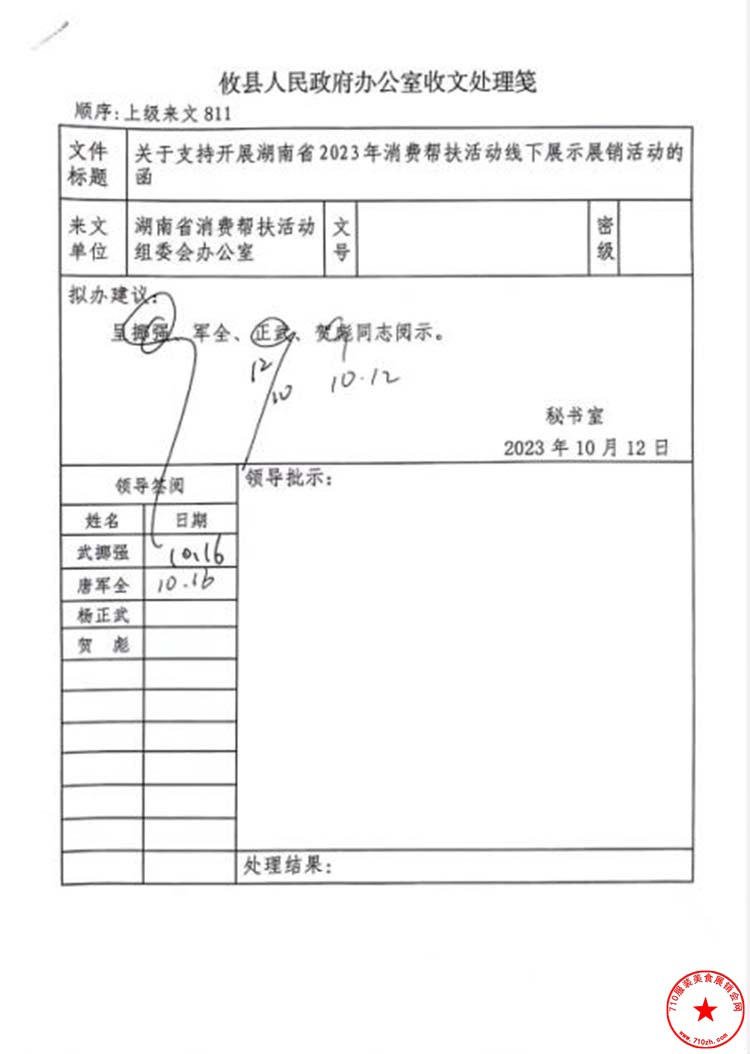 攸县人民政府办公室收文处理笺
顺序：上级来文811
文件标题
关于支持开展湖南省2023年消费帮扶活动线下展示展销活动的
函
来文单位
湖南省消费帮扶活动
组委会办公室
文号
密级
拟办建议：
呈掷强、军全、正武、贺彪同志阅示。
12/10
10.12
秘书室
2023年10月12日
领导签阅
领导批示：
姓名 日期
武掷强 10.16
唐军全 10.16
杨正武
贺 彪
处理结果：
710服装美食展销会网
www.710zh.com